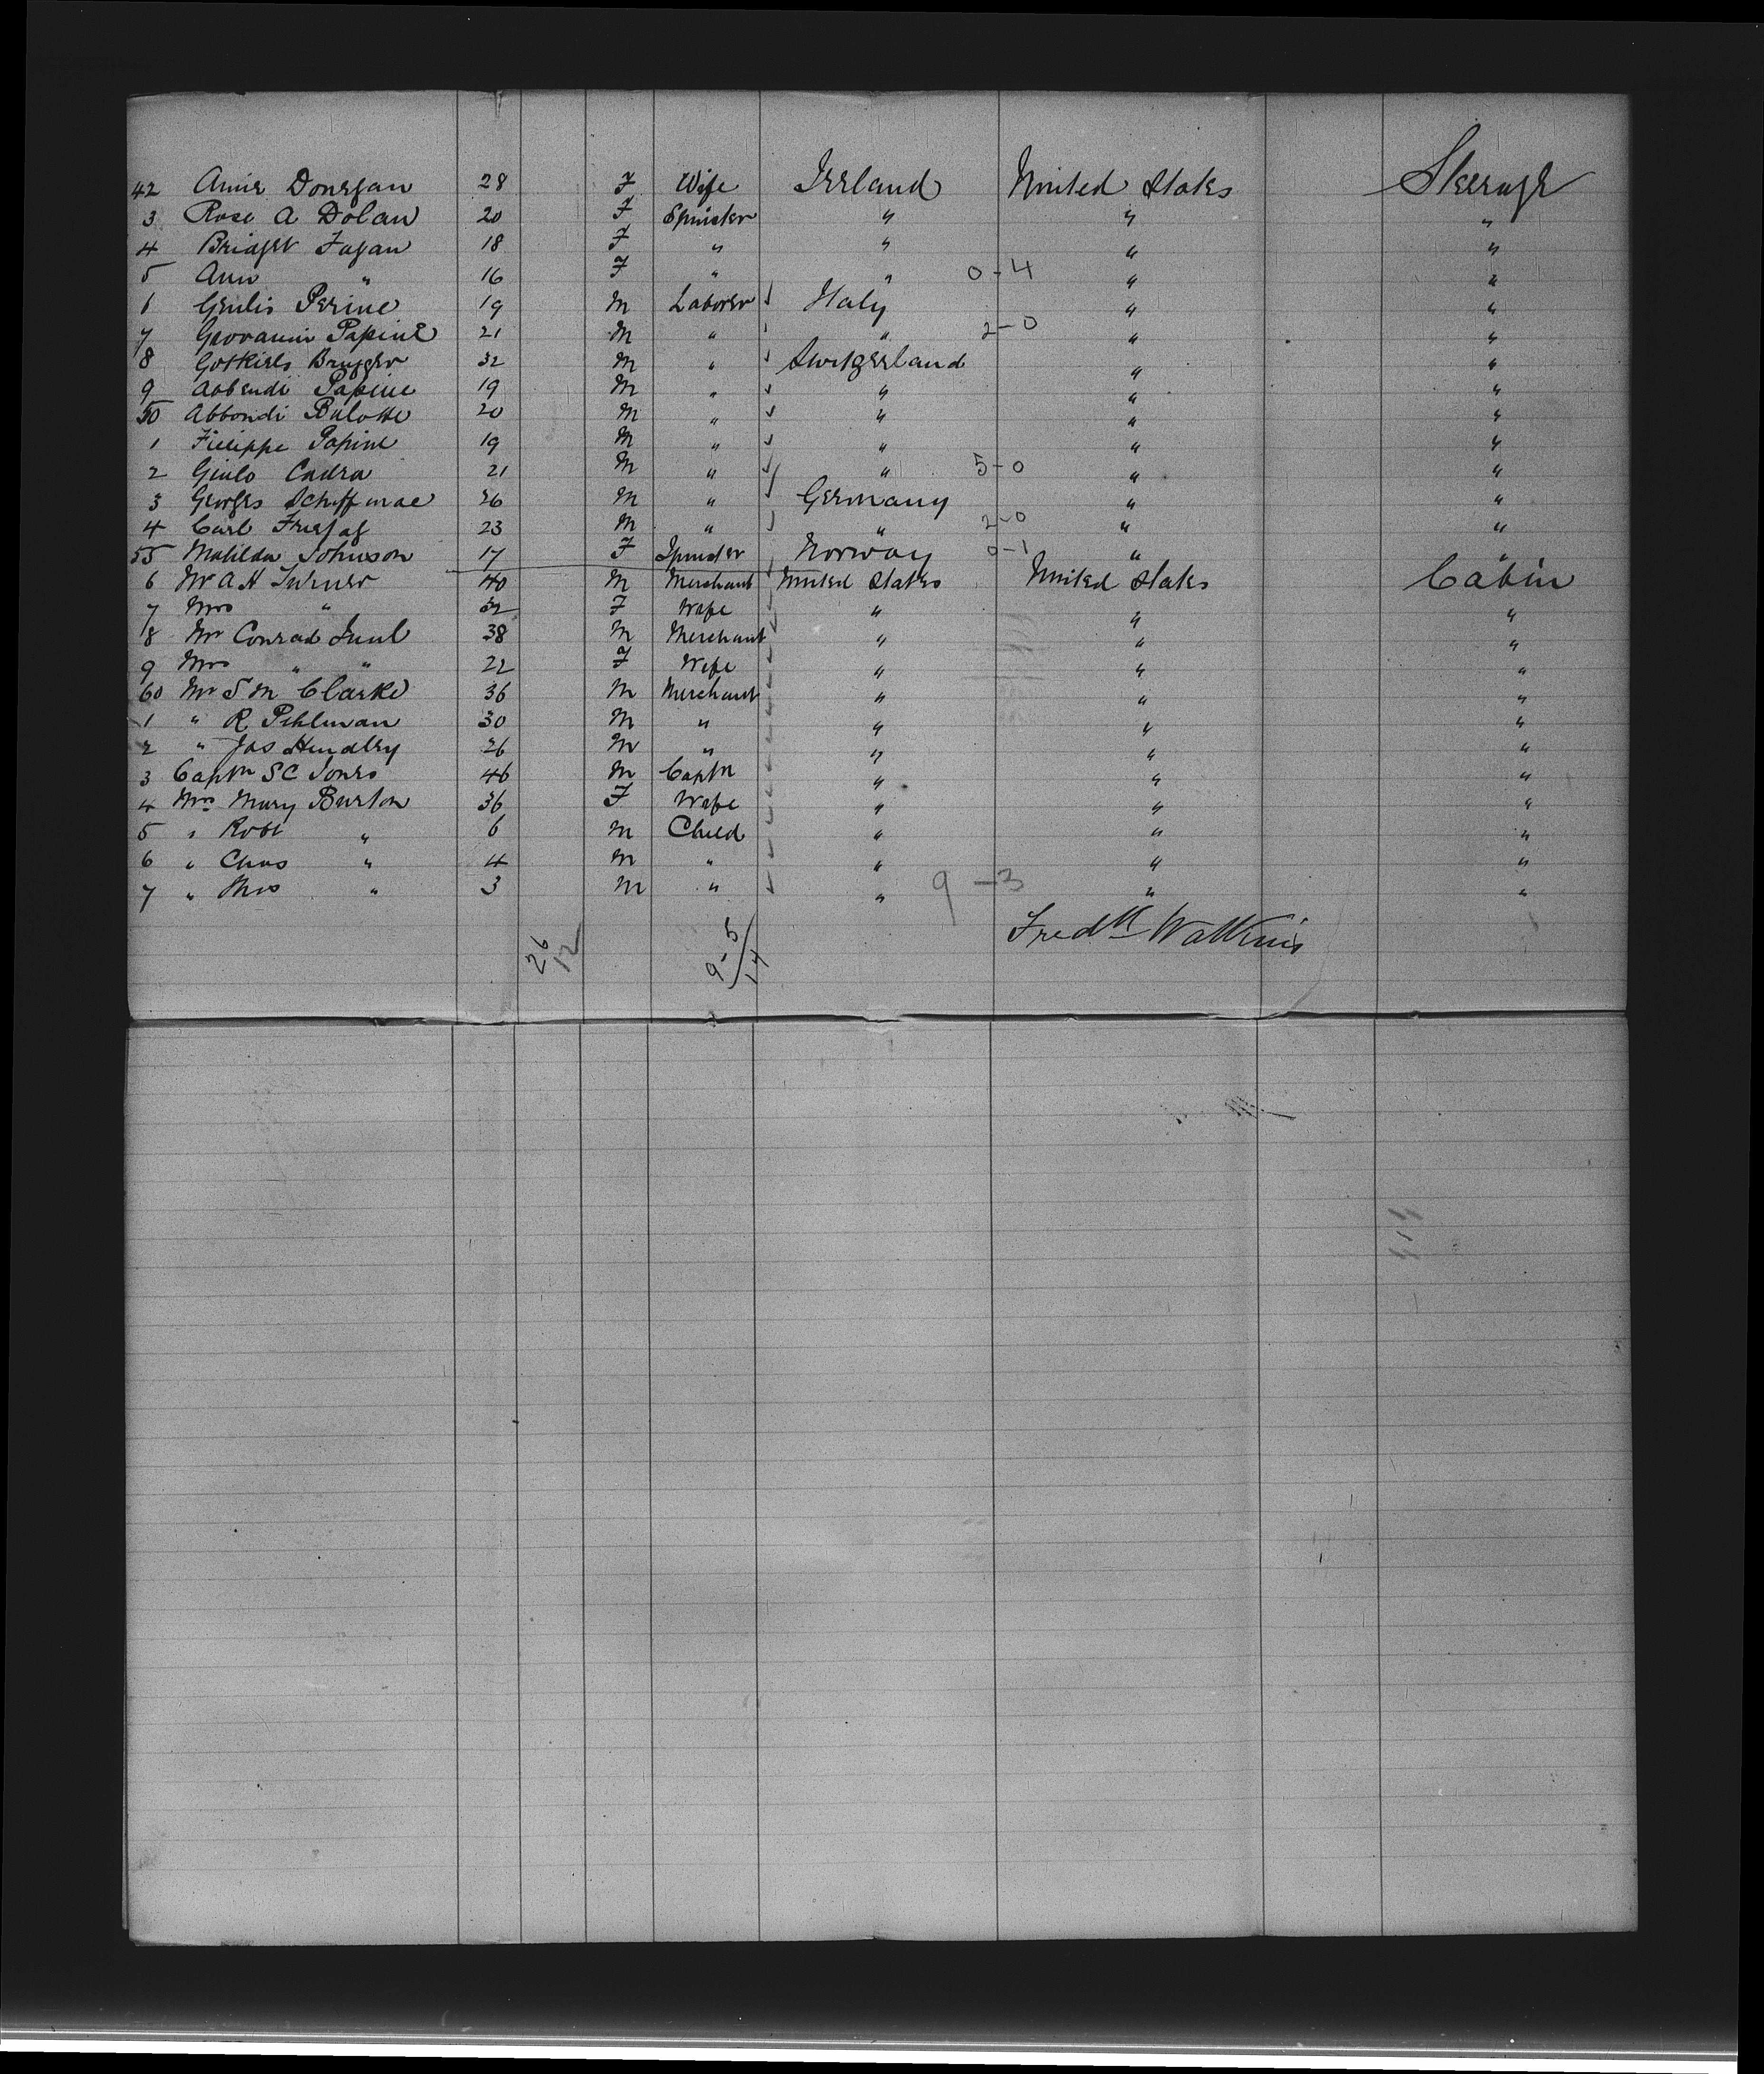 42 Annie Donegan 28 F Wife Ireland United States Steerage
3 Rose A Dolan 20 F Spinster " " "
4 Bridget Fagan 18 F " " " "
5 Ann " 16 F " " 0-4 " "
6 Perine 19 M Laborer Italy " "
7 Giovanni Papine 21 M " " 2-0 " "
8 32 M " Switzerland " "
9 Papine 19 M " " " "
50 Abbondi 20 M " " " "
1 Filippe Papine 19 M " " " "
2 Giulo Cadra 21 M " " 5-0 " "
3 Georges 26 M " Germany " "
4 Carl 23 M " " 2-0 " "
55 Matilda Johnson 17 F Spinster Norway 0-1 " "
6 Mr A H Turner 40 M Merchant United States United States Cabin
7 Mrs " 32 F Wife " " "
8 Mr Conrad Juul 38 M Merchant " " "
9 Mrs " " 22 F Wife " " "
60 Mr S M Clarke 36 M Merchant " " "
1 " R Pihlman 30 M " " " "
2 " Jas Hindley 26 M " " " "
3 Captn S C Jones 46 M Captn " " "
4 Mrs Mary Burton 36 F Wife " " "
5 " Robt " 6 M Child " " "
6 " Chas " 4 M " " " "
7 " " 3 M " " 9-3 " "
Fredk Watkins
26
12
9-5
14